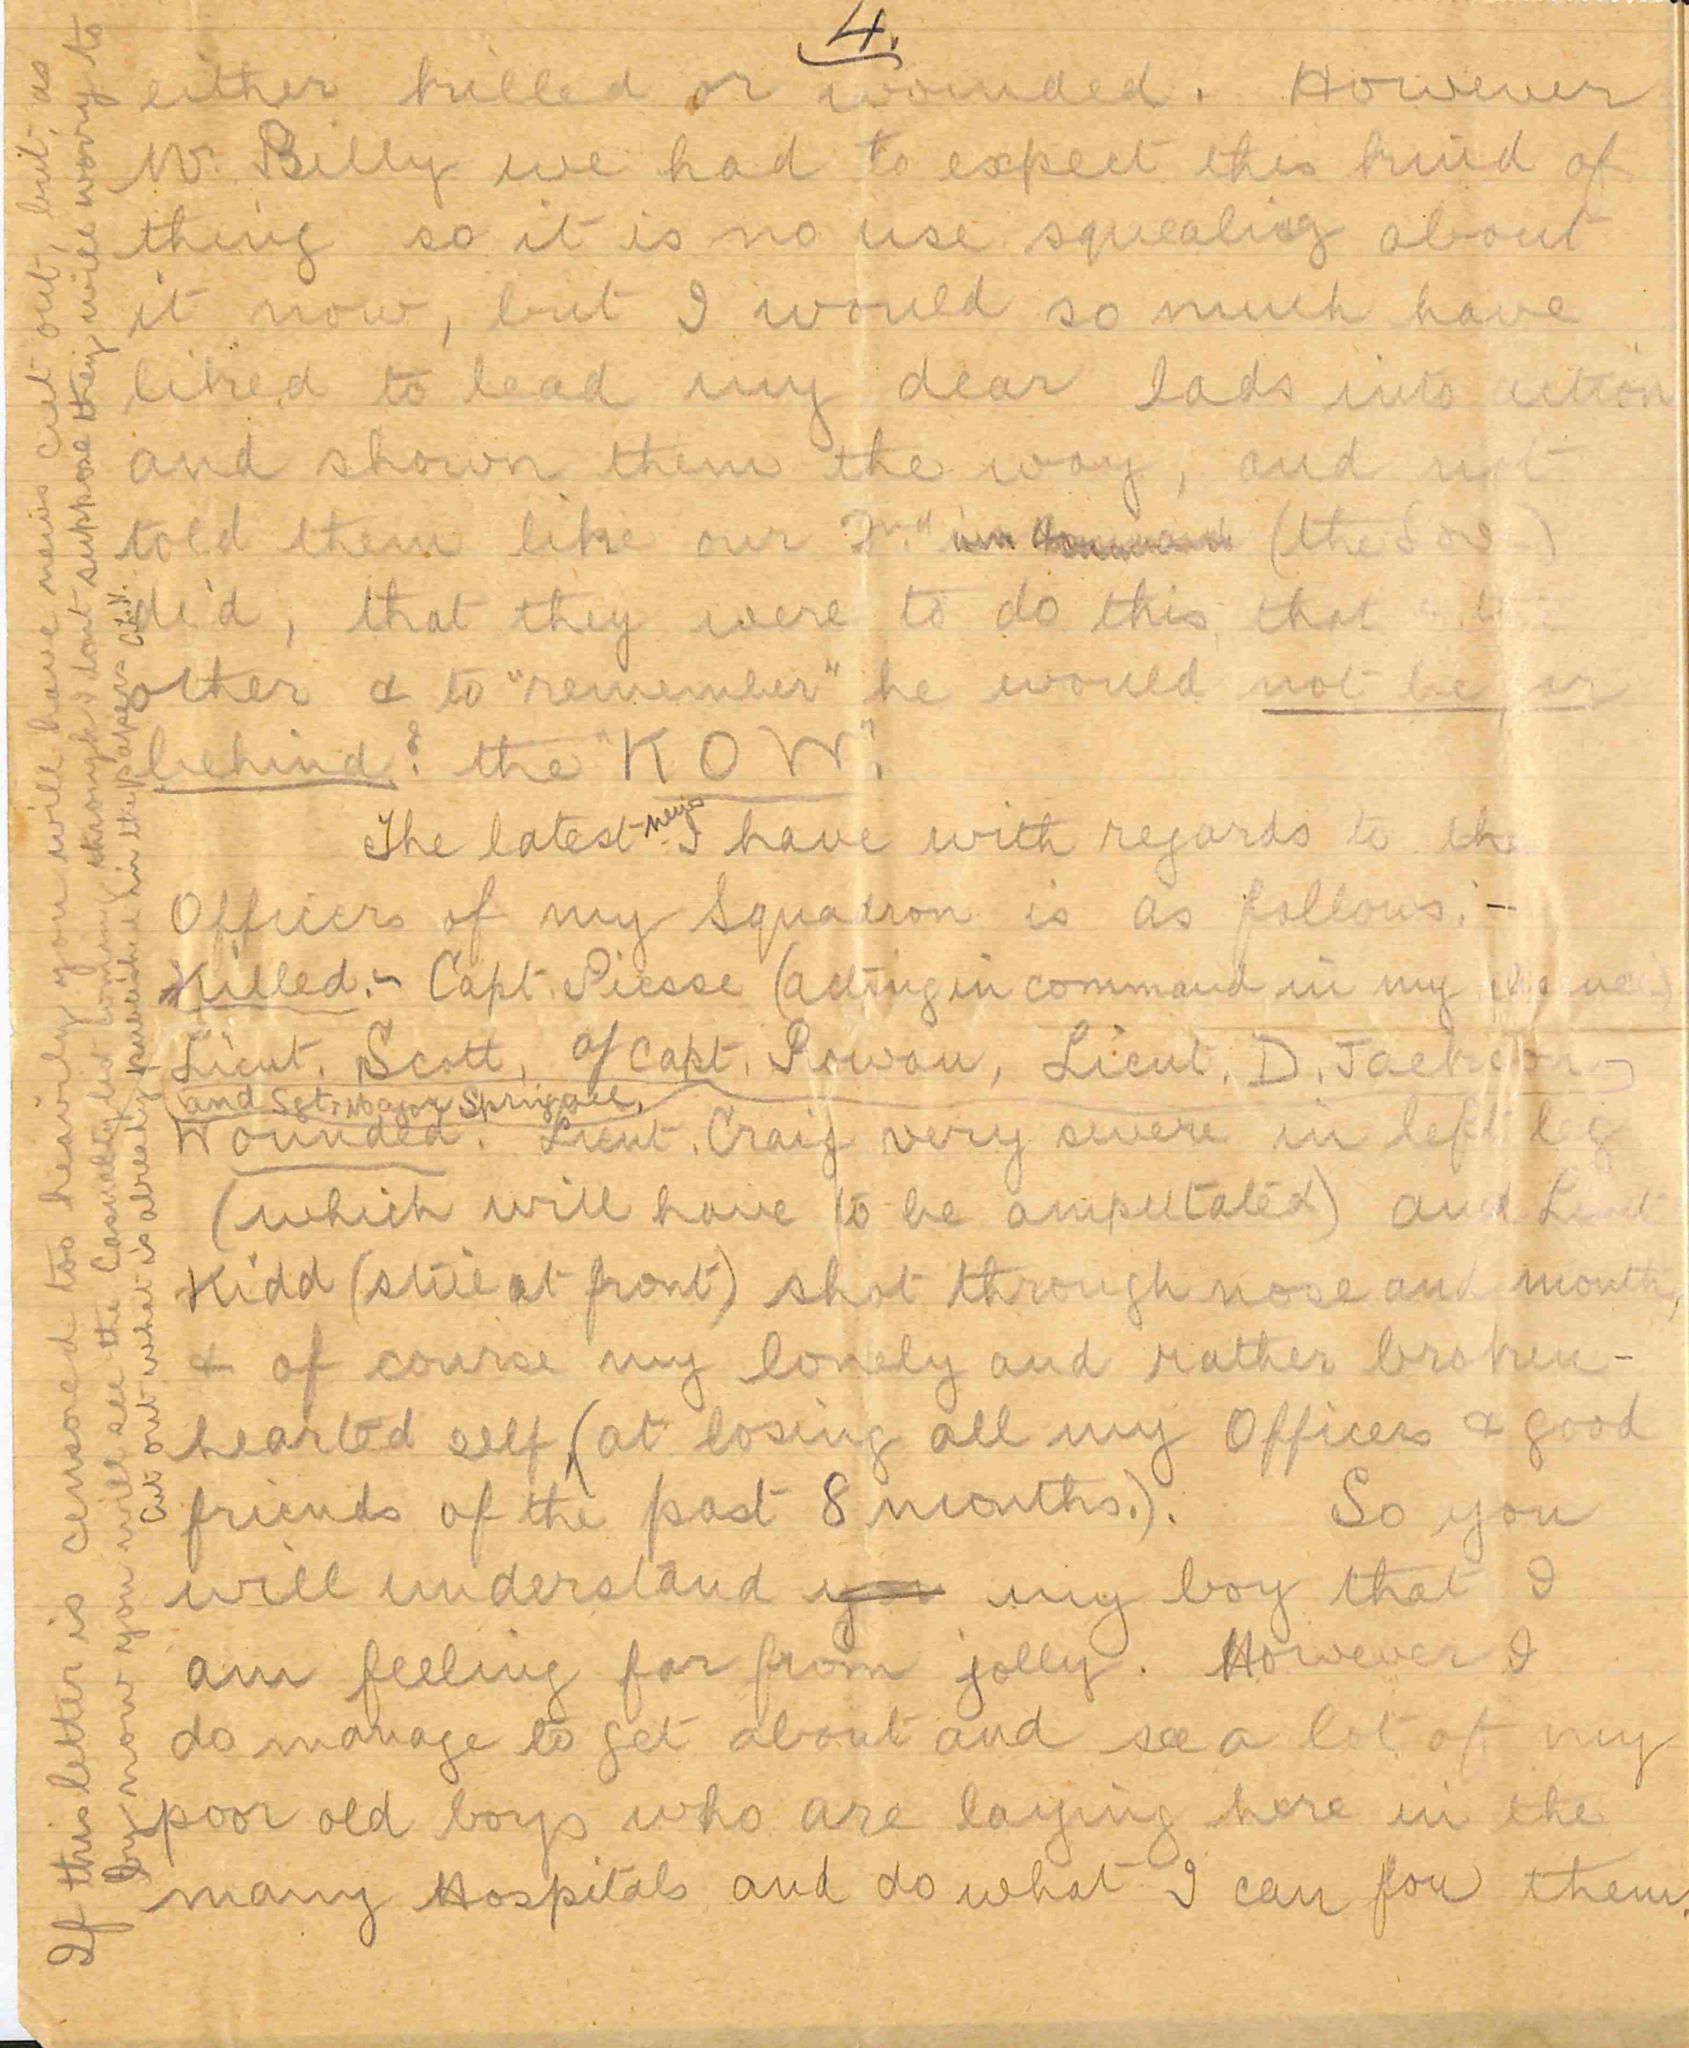 4.
either killed or wounded. However
Mr. Billy we had to expect this kind of
thing so it is no use squealing about
it now, but I would so much have
liked to lead my dear lads into action
and shown them the way, and not
told them like our 2nd in Command (the Sow)
did, that they were to do this, that & the
other & to "remember" he would not be far
behind? the "KOW".
The latest news I have with regards to the
Officers of my Squadron is as follows:-
Killed:- Capt. Piesse (acting in command in my absence)
Lieut. Scott, of Capt. Rowan, Lieut. D. Jackson
and Sgt. Major Springall,
Wounded. Lieut. Craig very severe in left leg
(which will have to be amputated) and Lieut
Kidd (still at front) shot through nose and mouth,
& of course my lonely and rather broken-
hearted self, (at losing all my Officers & good
friends of the past 8 months.). So you
will understand you my boy that I
am feeling far from jolly. However I
do manage to get about and see a lot of my
poor old boys who are laying here in the
many Hospitals and do what I can for them.
If this letter is censored too heavily you will have news cut out, but, as
by now you will see the Casualty list coming through I dont suppose they will worry to
cut out what is already published in the papers